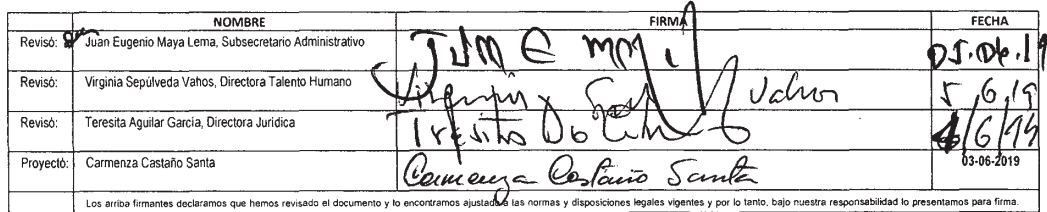 NOMBRE FIRMA FECHA
Revisó: Juan Eugenio Maya Lema, Subsecretario Administrativo JUAN E 05.06.19
Revisó: Virginia Sepúlveda Vahos, Directora Talento Humano Virginia Vahos 5,6,19
Revisó: Teresita Aguilar García, Directora Jurídica Teresita 4/6/19
Proyectó: Carmenza Castaño Santa Carmenza Castaño Santa 03-06-2019
Los arriba firmantes declaramos que hemos revisado el documento y lo encontramos ajustado a las normas y disposiciones legales vigentes y por lo tanto, bajo nuestra responsabilidad lo presentamos para firma.